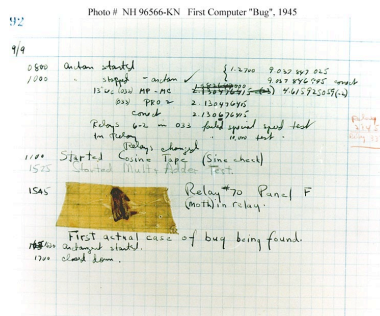 Photo # NH 96566-KN First Computer "Bug", 1945
92
9/9
0800 Antan started
1000 " stopped - antan ✓ { 1.2700 9.037 847 025
9.037 846 995 correct
13"uc (032) MP - MC 4.615925059(-2)
(033) PRO 2 2.130476415
correct 2.130676415
Relays 6-2 in 033 failed special speed test
in relay " 10.000 test.
Relays changed
1100 Started Cosine Tape (Sine check)
1525 Started Multi Adder Test.
1545 Relay #70 Panel F
(moth) in relay.
First actual case of bug being found.
antangent started.
1700 closed down.